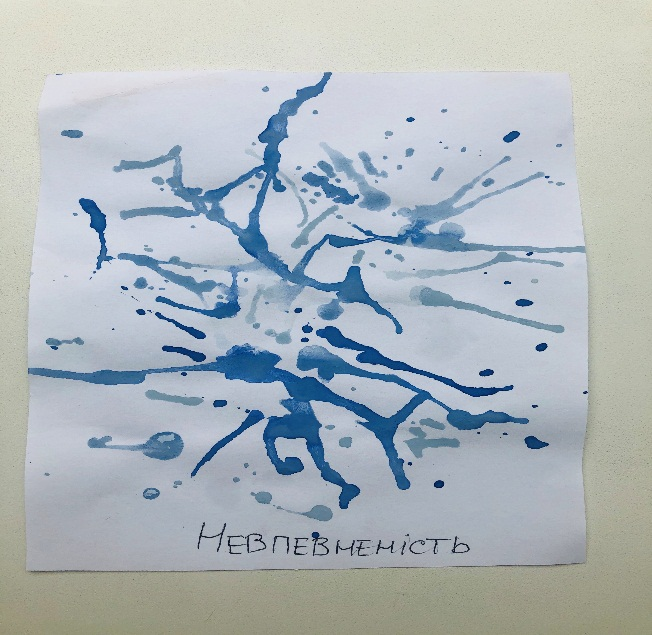 Невпевненість